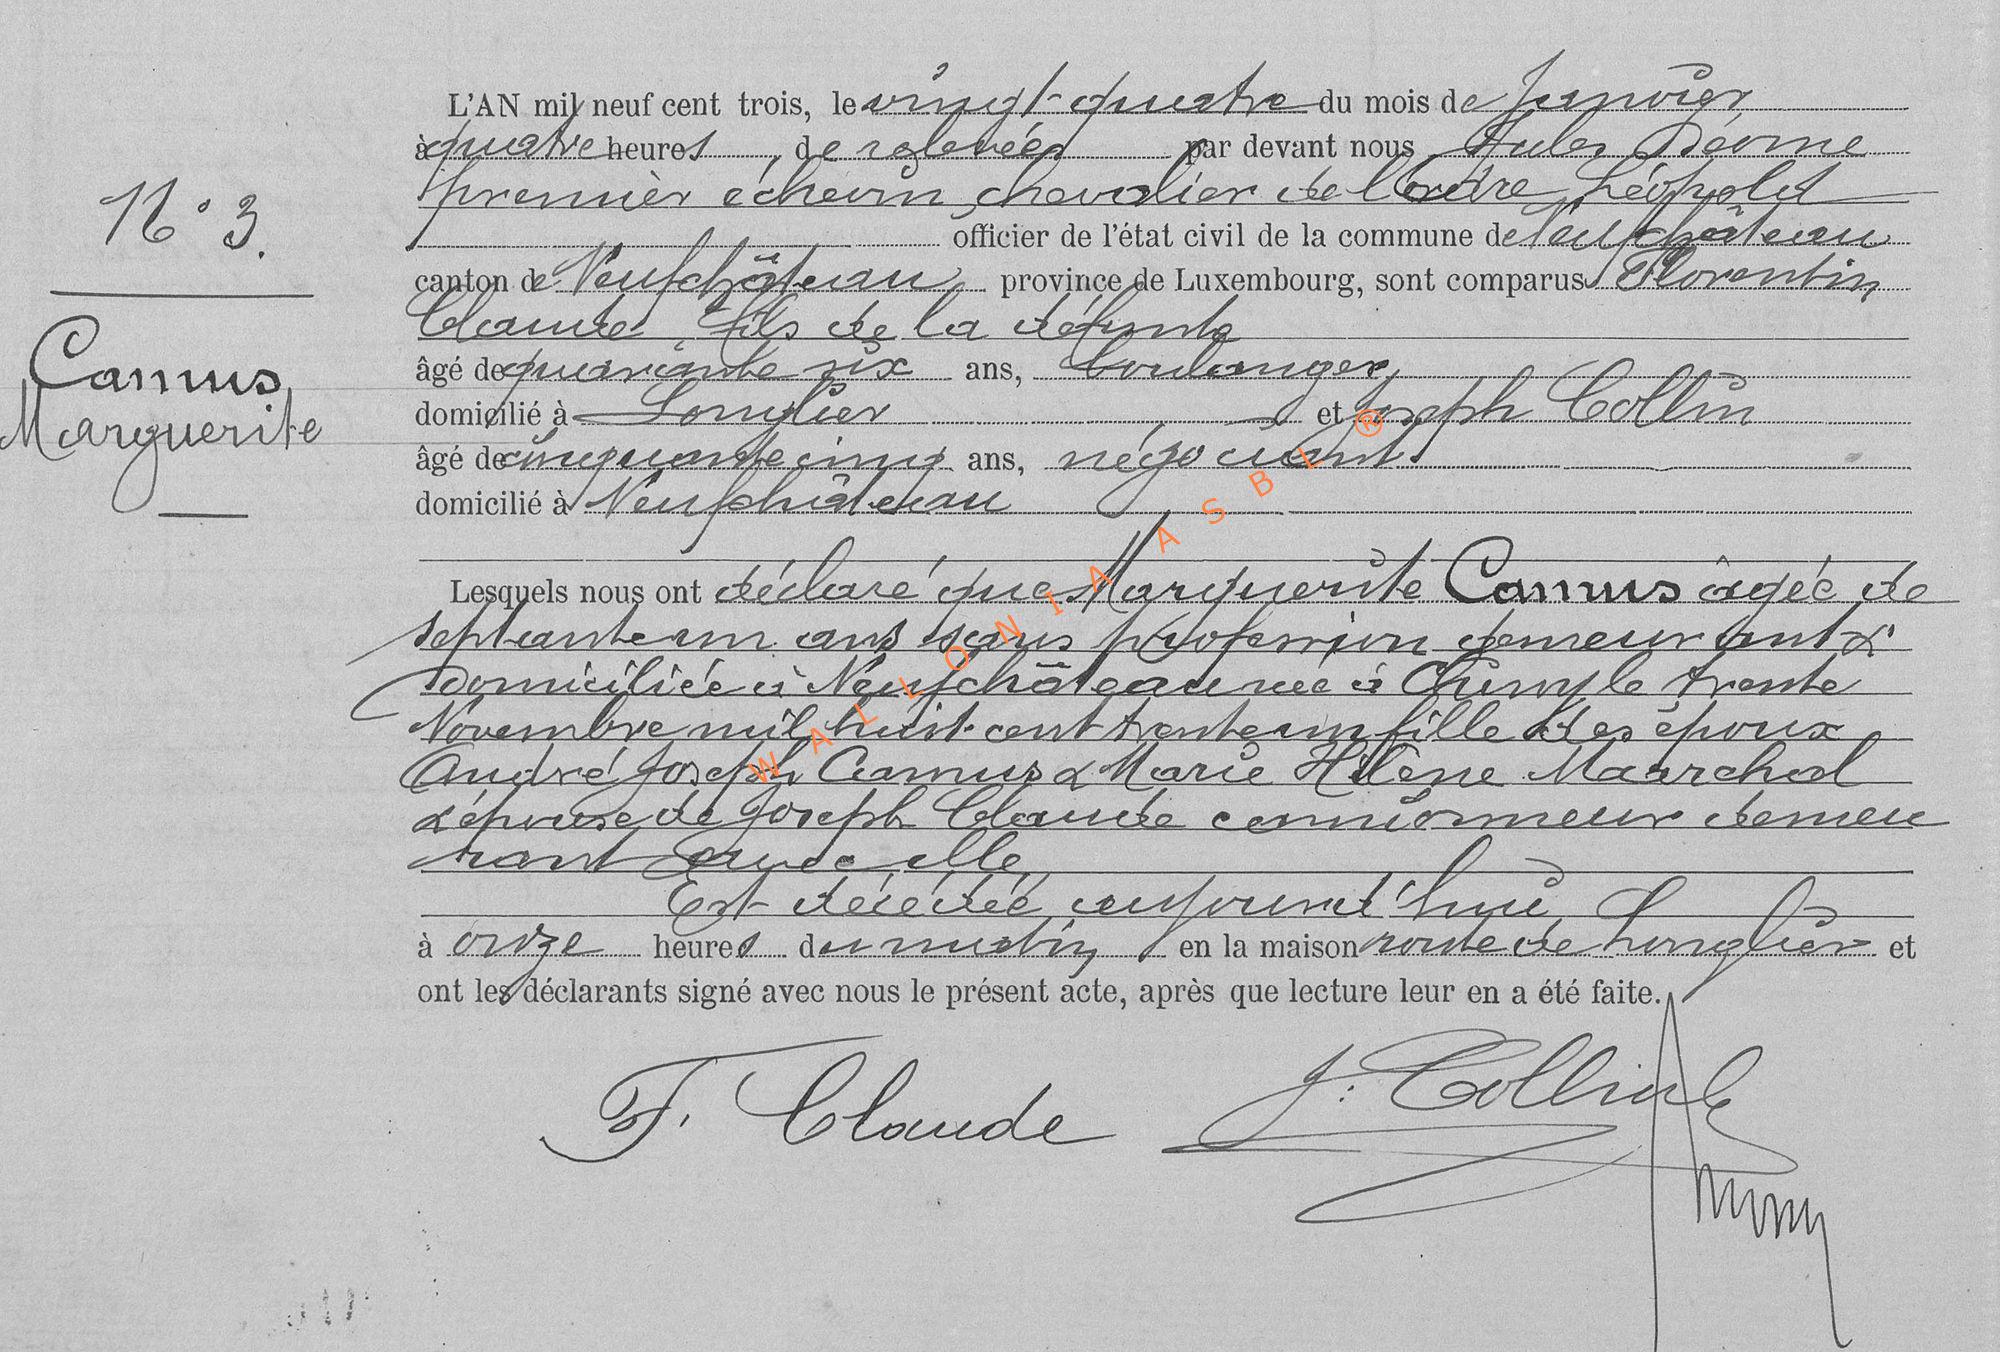 N° 3.
Camus
Marguerite
L'AN mil neuf cent trois, le vingt-quatre du mois de Janvier
à quatre heures, de relevée par devant nous Jules
premier échevin, chevalier de l'ordre Léopold
officier de l'état civil de la commune de Neufchâteau
canton de Neufchâteau province de Luxembourg, sont comparus Florentin
Claude, fils de la défunte
âgé de quarante six ans, boulanger
domicilié à Longlier et Joseph Collin
âgé de cinquante cinq ans, négociant
domicilié à Neufchâteau
Lesquels nous ont déclaré que Marguerite Camus âgée de
septante un ans sans profession demeurant &
domiciliée à Neufchâteau née à Cugny le trente
Novembre mil huit cent trente un fille des époux
André Joseph Camus & Marie Hélène Maarchal
& épouse de Joseph Claude camionneur demeu
rant avec elle
Est décédée aujourd'hui
à onze heures du matin en la maison route de Longlier et
ont les déclarants signé avec nous le présent acte, après que lecture leur en a été faite.
F. Claude
J. Collin
WALLONIA ASBL ®